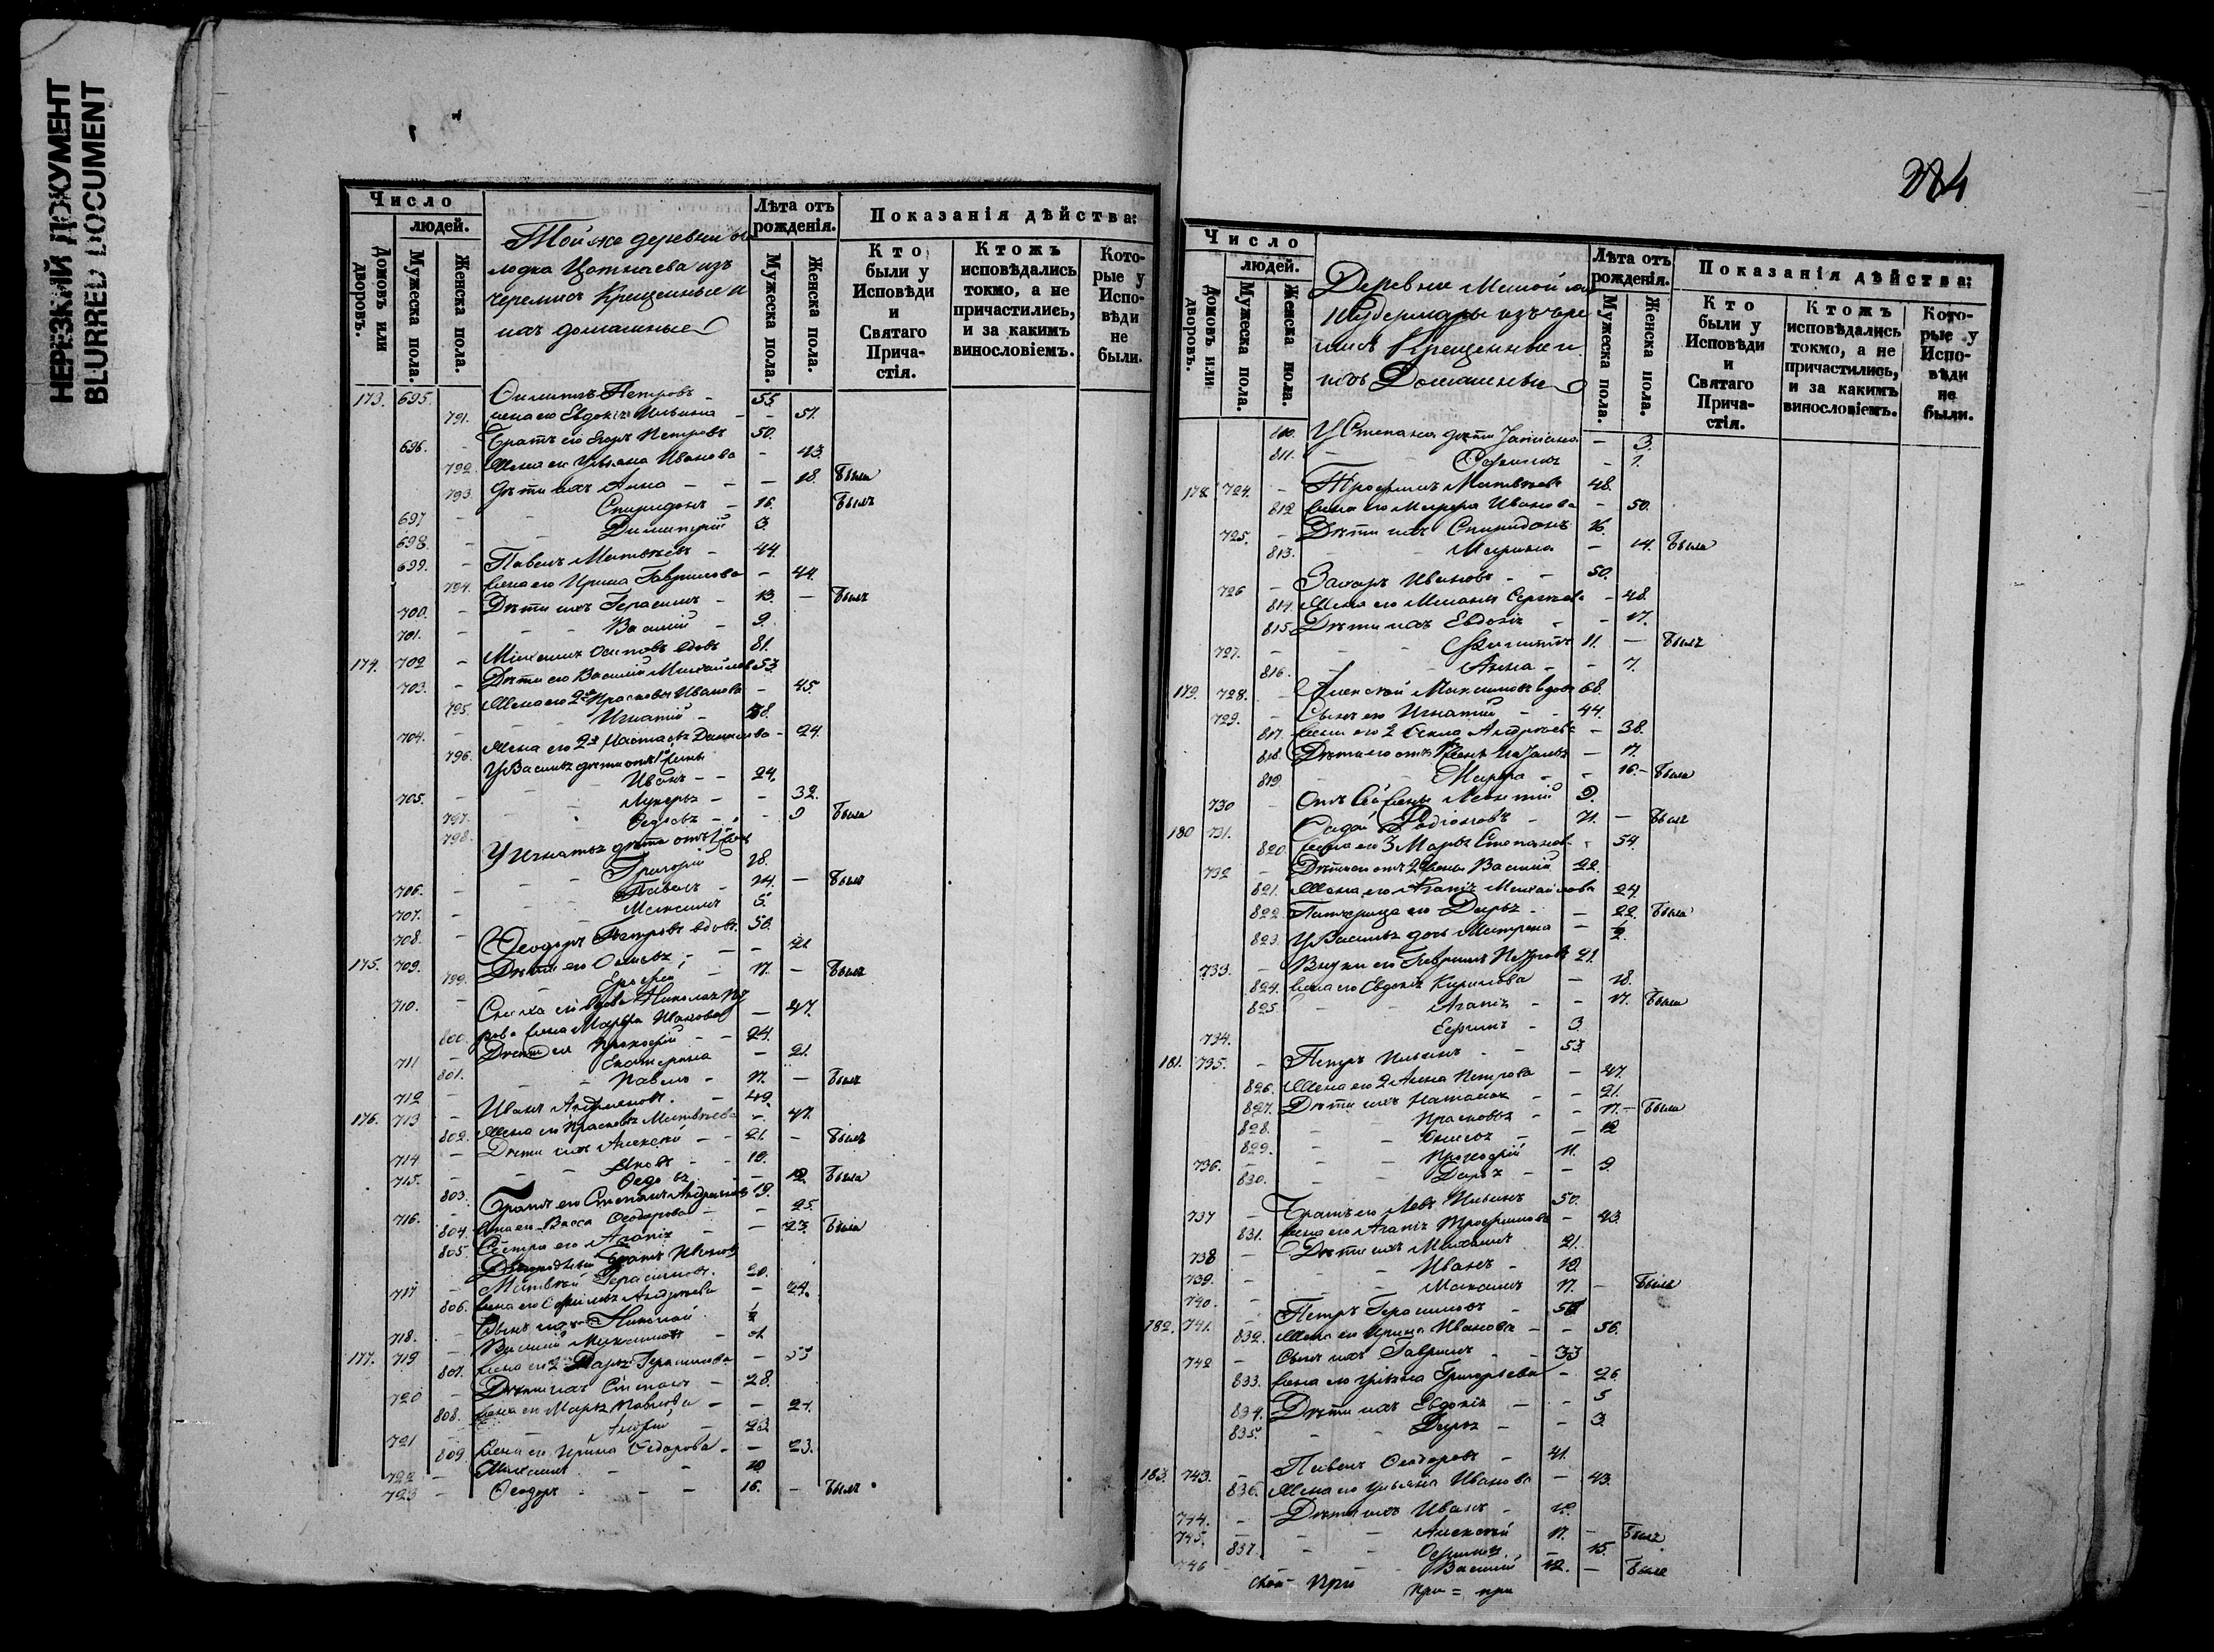 НЕРЕЗКИЙ ДОКУМЕНТ
BLURRED DOCUMENT
Число
людей.
Домовъ или дворовъ.
Мужеска пола.
Женска пола.
Той же деревни
изъ
черемисъ Крещенные и
ихъ домашные
Лѣта отъ рожденія.
Мужеска пола.
Женска пола.
Показанія дѣйства:
Кто были у Исповѣди и Святаго Причастія.
Ктожъ исповѣдались токмо, а не причастились, и за какимъ винословіемъ.
Которые у Исповѣди не были.
173. 695. Филиппъ Петровъ - 55
791. жена его Евдокія Ильина - - 51.
696. - Братъ его Егоръ Петровъ 50.
792. Жена его Ульяна Иванова - 43.
793. Дѣти ихъ Анна - - - 18. Была
697 - - Спиридонъ - 16. Былъ
698. - - Димитрій 3.
699. - Павелъ Матвѣевъ - 44.
794. жена его Ирина Гаврилова - 44.
700. - Дѣти ихъ Герасимъ - 13. - Былъ
701. - - - Василій - 9.
174. 702 - Осиповъ вдовъ 81.
703. - Дѣти его Василій Михайловъ 53
795. Жена его 2я Прасковья Иванова - 45.
704. - Игнатій - 38.
796. Жена его 2я Настасья Данилова - 24.
У Василья дѣти отъ 1й жены
705. - - - Иванъ - - 24.
797. - Лукерья - - 32.
798. - Ѳедосья - - 9 Была
У Игнатья дѣти отъ 1й жены
706. - - - Григорій 18.
707. - - - Павелъ - 14. - Былъ
708. - - Максимъ 5.
175. 709. Ѳеодоръ Петровъ вдовъ. 50.
799. Дѣти его - - 21
710. - - Ерофей - 17. - Былъ
Сноха его вдова Николая Пет
800. рова жена Марѳа Иванова - 47.
711 - Дѣти ея Прокофій - - 24.
801. - Екатерина - 21.
712 - - - Павелъ - 17. - Былъ
176. 713 - Иванъ - 49.
802. Жена его Прасковья Матвѣева - 47.
714 - Дѣти ихъ Алексѣй - - 21. - Былъ
715. - - - Яковъ - - 19.
803. - Ѳедосья - - 12. Была
716. - Братъ его Степанъ 19.
804. жена его Васса Ѳеодорова - - 25.
805. Сестра его Агапія - - 23. Была
Двоюродный братъ Ивановъ
717 - Матвѣй Герасимовъ. 20.
806. жена его Андреева - 24.
718. - Сынъ ихъ Николай
177. 719 - Василій Максимовъ -
807. жена его 2 Дарья Герасимова - 53
720 - Дѣти ихъ Степанъ - 28.
808. жена его Марья Павлова - - 21.
721 - Андрей - 23
809. жена его Ирина Ѳедорова - - 23.
722 - Максимъ - - 19
723 - Ѳеодоръ - - - 16. - Былъ
384
Число
людей.
Домовъ или дворовъ.
Мужеска пола.
Женска пола.
Деревни Малой
Шудермары изъ чере
мисъ Крещенные и
ихъ Домашные
Лѣта отъ рожденія.
Мужеска пола.
Женска пола.
Показанія дѣйства:
Кто были у Исповѣди и Святаго Причастія.
Ктожъ исповѣдались токмо, а не причастились, и за какимъ винословіемъ.
Которые у Исповѣди не были.
810. У Степана дѣти Татіана - 3.
811. - - - 1.
178. 724. - Трофимъ Матвѣевъ 48.
812 жена его Марѳа Иванова - 50.
725. - Дѣти ихъ Спиридонъ 16.
813. - - Марина - 14. Была
726 - Захаръ Ивановъ - - 50.
814. Жена его Сергѣева - 48.
815. Дѣти ихъ Евдокія - - 17.
727. - - - Филиппъ 11. - Былъ
816. - - Анна - - 7.
179. 728. - Алексѣй Максимовъ вдовъ 68.
729. - Сынъ его Игнатій - - 44.
817. жена его 2 Ѳекла Андреева - 38.
818. Дѣти его отъ 1й жены - 17
819. - - Марѳа - - 16. - Была
730 - Отъ 2й жены Леонтій 9.
180 731. - Садай Родіоновъ - 71. - Былъ
820. жена его 3 Марья Степанов. - 54.
732 - Дѣти его отъ 2й жены Василій 22.
821. Жена его Агапія Михайлова 24.
822. Падчерица его Дарья - - 22. Была
823. У Василья дочь Матрена - 1/2.
733. - Внуки его Гаврилъ Петровъ 21.
824. жена его Евдокія Кирилова - 18.
825. - - Агапія - - 17. Была
734. - - - 3
181. 735. - Петръ Ильинъ - - 53
826. Жена его 2 Анна Петрова - 47.
827. Дѣти ихъ Наталья - - 21.
828. - - Прасковья - - 17. - Была
829. - - - - 12
736. - - - Прокофій 11.
830. - - Дарья - - 9.
737 - Братъ его Левъ Ильинъ 50.
831. жена его Агапія Трофимова - 43.
738 - Дѣти ихъ Михаилъ 21.
739. - - - Иванъ - 19.
740. - - - Максимъ 17. - Былъ
182. 741. - Петръ Герасимовъ - 56
832. Жена его Ирина Иванова - - 56.
742 - Сынъ ихъ Гаврилъ - - 33
833. жена его Ульяна Григорьева - 26.
834. Дѣти ихъ Евдокія - - 5
835. - - Дарья - - 3.
183. 743. - Павелъ Ѳеодоровъ - 41.
836. Жена его Ульяна Иванова - 43.
744. - Дѣти ихъ Иванъ - 18.
745. - - - Алексѣй 17. - Былъ
837. - - - 15.
746 - - Василій 12. - Былъ